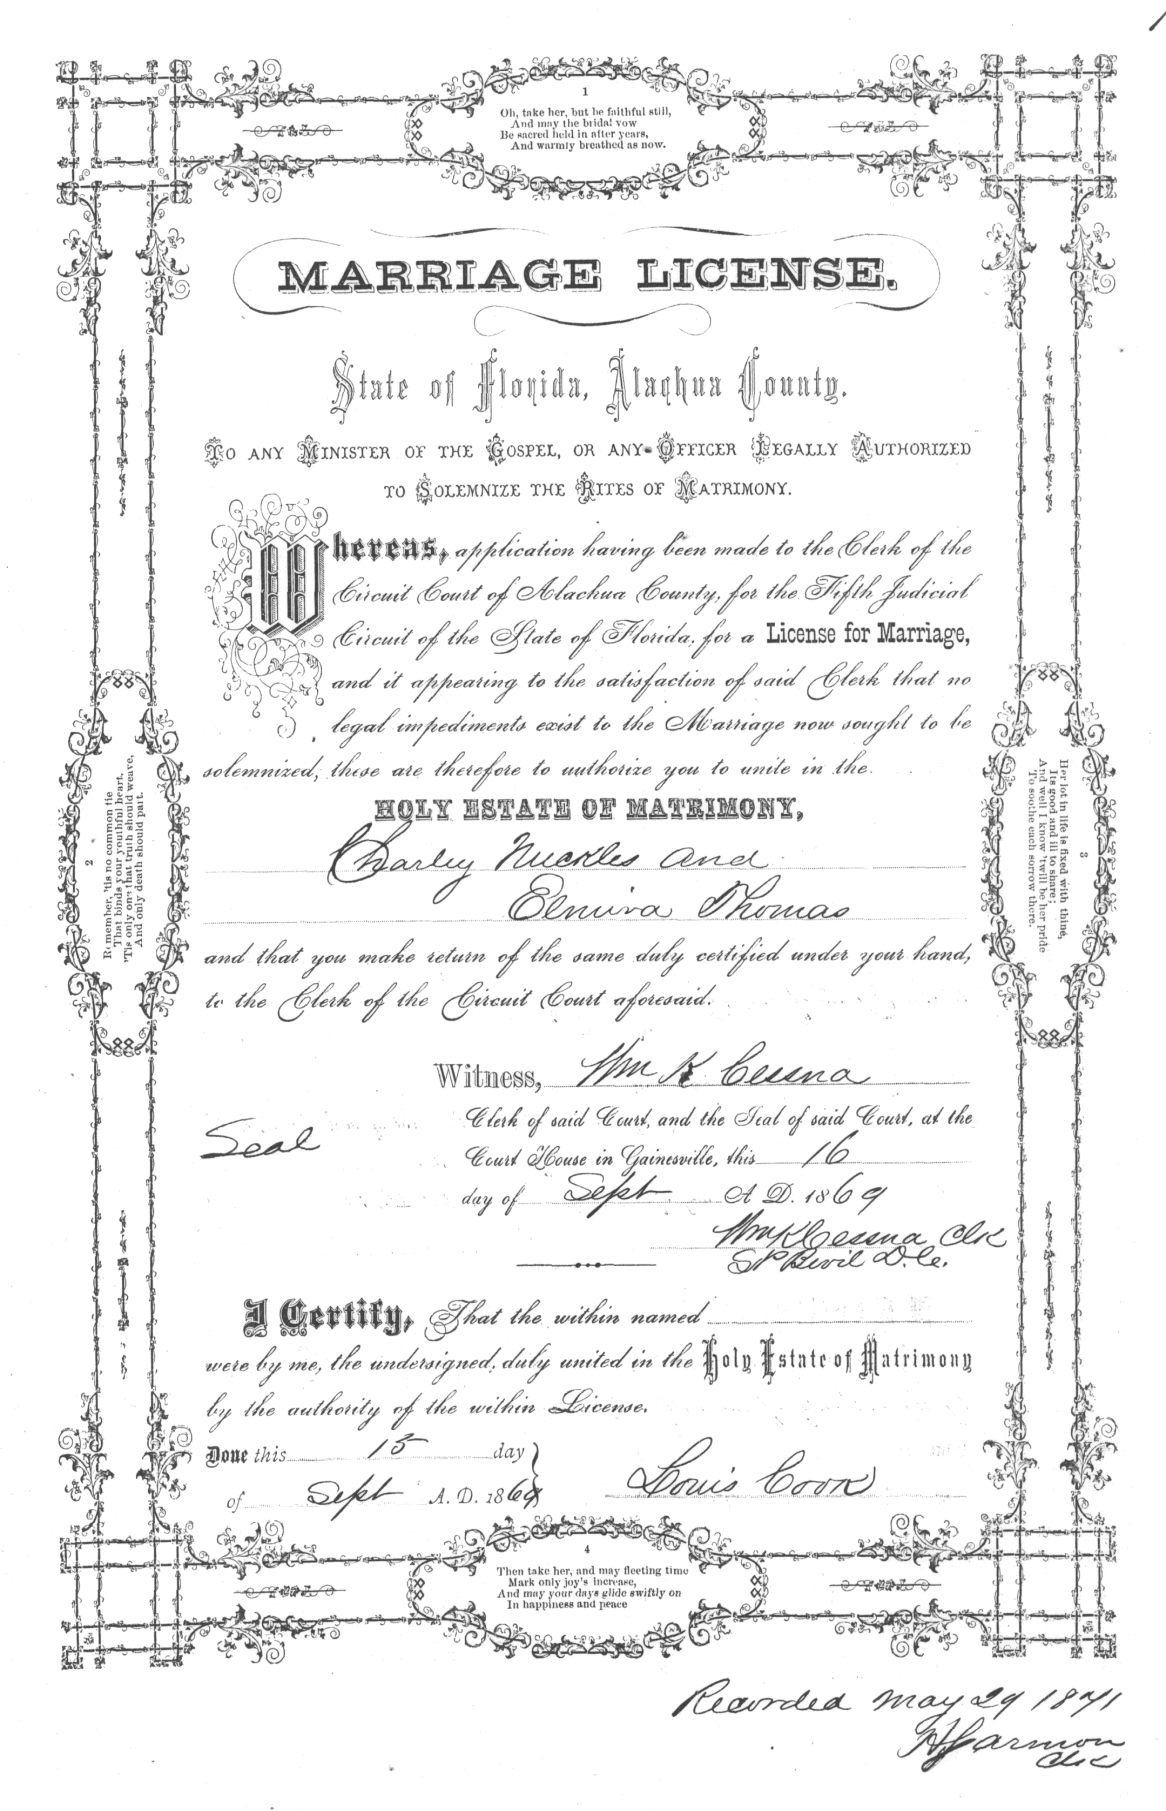 1
Oh, take her, but be faithful still,
And may the bridal vow
Be sacred held in after years,
And warmly breathed as now.
MARRIAGE LICENSE.
State of Florida, Alachua County.
TO ANY MINISTER OF THE GOSPEL, OR ANY OFFICER LEGALLY AUTHORIZED
TO SOLEMNIZE THE RITES OF MATRIMONY.
Whereas, application having been made to the Clerk of the
Circuit Court of Alachua County, for the Fifth Judicial
Circuit of the State of Florida, for a License for Marriage,
and it appearing to the satisfaction of said Clerk that no
legal impediments exist to the Marriage now sought to be
solemnized, these are therefore to authorize you to unite in the
HOLY ESTATE OF MATRIMONY,
Charley Nuckles and
Elmira Thomas
and that you make return of the same duly certified under your hand,
to the Clerk of the Circuit Court aforesaid.
2
Remember, 'tis no common tie
That binds your youthful heart,
'Tis only one that truth should weave,
And only death should part.
3
Her lot in life is fixed with thine,
Its good and ill to share;
And well I know 'twill be her pride
To soothe each sorrow there.
Witness, Wm K Cessna
Clerk of said Court, and the Seal of said Court, at the
Seal
Court House in Gainesville, this 16
day of Sept A D. 1869
Wm K Cessna Clk
S P Bevil D.C.
I Certify, That the within named
were by me, the undersigned, duly united in the Holy Estate of Matrimony
by the authority of the within License.
Done this 15 day
of Sept A. D. 1869
Louis Cook
4
Then take her, and may fleeting time
Mark only joy's increase,
And may your days glide swiftly on
In happiness and peace
Recorded May 29 1871
Clk